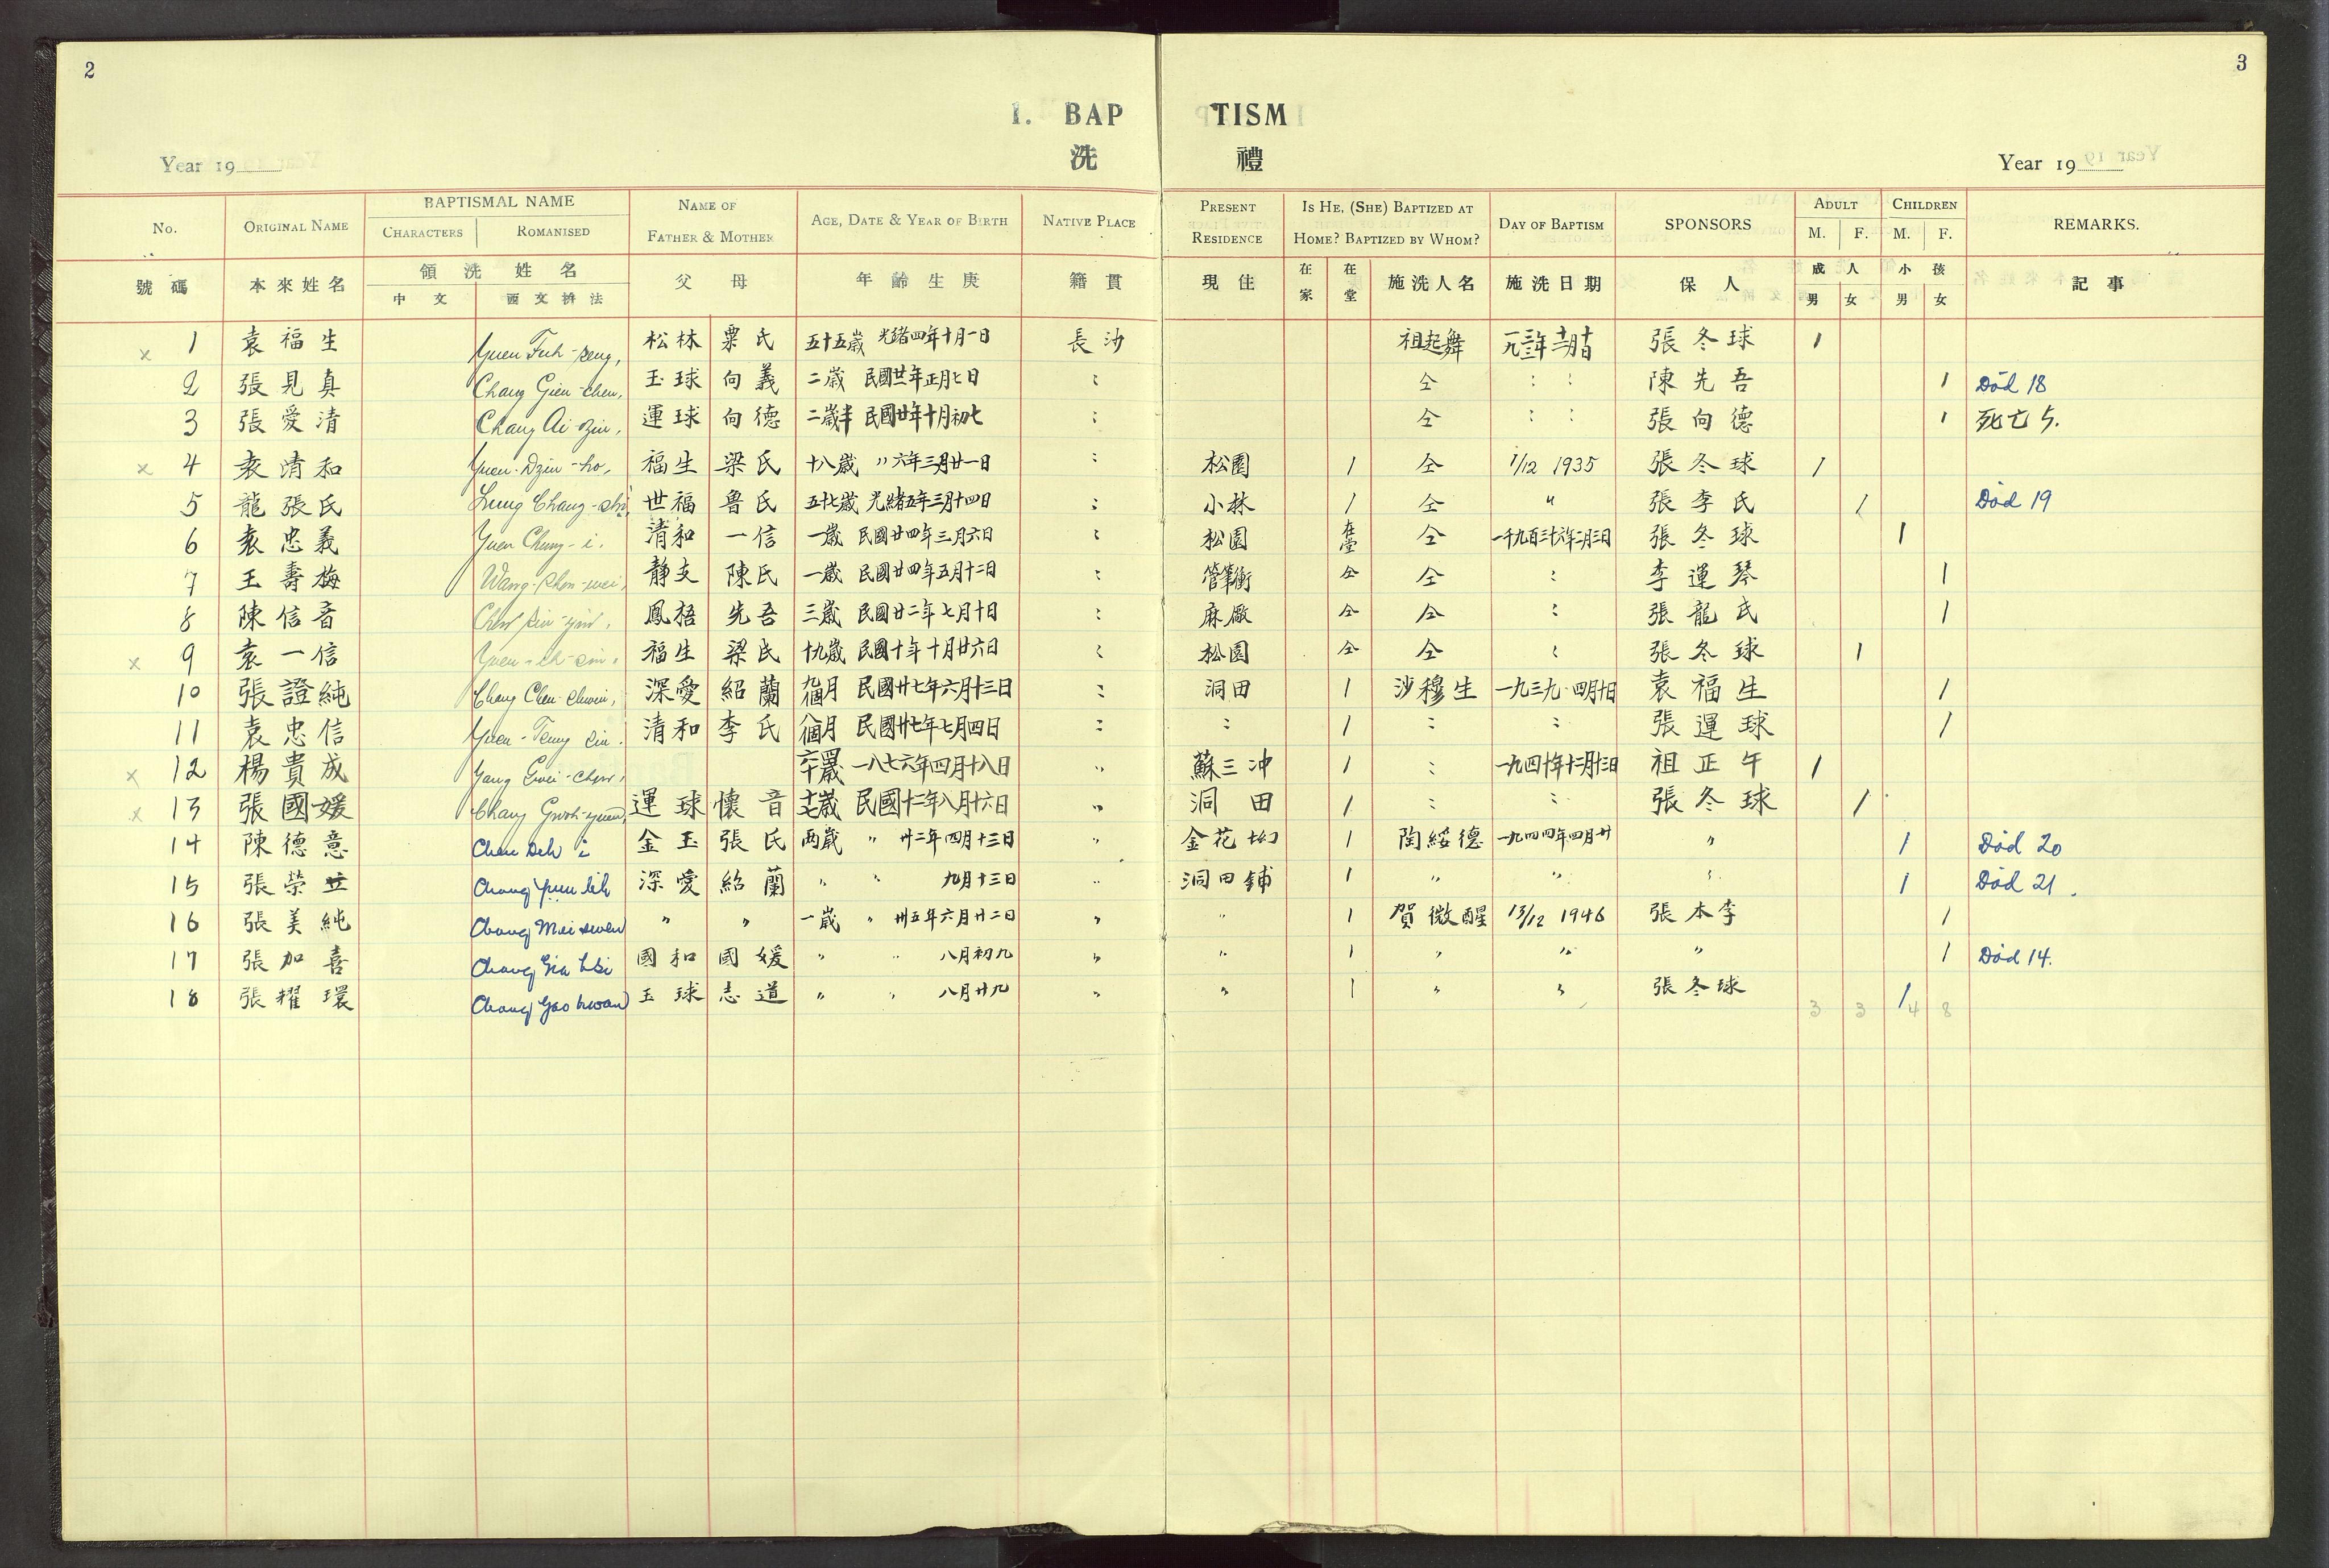 2
3
I. BAP TISM
洗 禮
Year 19
Year 19
No. ORIGINAL NAME BAPTISMAL NAME CHARACTERS ROMANISED NAME OF FATHER & MOTHER AGE, DATE & YEAR OF BIRTH NATIVE PLACE PRESENT RESIDENCE IS HE, (SHE) BAPTIZED AT HOME? BAPTIZED BY WHOM? DAY OF BAPTISM SPONSORS ADULT M. F. CHILDREN M. F. REMARKS.
號碼 本來姓名 領洗姓名 中文 西文拚法 父 母 年齡生庚 籍貫 現住 在家 在堂 施洗人名 施洗日期 保人 成人 男 女 小孩 男 女 記事
x 1 袁福生 Yuen Fuh-seng, 松林 粟氏 五十五歲 光緒四年十月一日 長沙 祖起舞 張冬球 1
2 張見真 Chang Gien-chen, 玉球 向義 二歲 民國廿一年正月七日 : 仝 : : 陳先吾 1 Död 18
3 張愛清 Chang Ai-dzin, 運球 向德 二歲半 民國廿年十月初七 : 仝 : : 張向德 1 死亡 5.
x 4 袁清和 Yuen-Dzin-ho, 福生 梁氏 十八歲 〃六年三月廿一日 : 松園 1 仝 1/12 1935 張冬球 1
5 龍張氏 Lung Chang-shi, 世福 魯氏 五十七歲 光緒五年三月十四日 : 小林 1 仝 〃 張李氏 1 Död 19
6 袁忠義 Yuen Chung-i, 清和 一信 一歲 民國廿四年三月六日 : 松園 在堂 仝 一千九百三十六年二月三日 張冬球 1
7 王壽梅 Wang-shou-mei, 靜支 陳氏 一歲 民國廿四年五月十二日 : 仝 仝 : 李運琴 1
8 陳信音 Chen sin-yin, 鳳梧 先吾 三歲 民國廿二年七月十日 : 麻廠 仝 仝 : 張龍氏 1
x 9 袁一信 Yuen-ih-sin, 福生 梁氏 十九歲 民國十年十月廿六日 : 松園 仝 仝 : 張冬球 1
10 張證純 Chang Chen-chwin, 深愛 紹蘭 九個月 民國廿七年六月十三日 : 洞田 1 沙穆生 一九三九·四月十日 袁福生 1
11 袁忠信 Yuen-Tsung sin, 清和 李氏 八個月 民國廿七年七月四日 : : 1 : : 張運球 1
x 12 楊貴成 Yang Gwei-chen, 六十四歲 一八七六年四月十八日 〃 蘇三冲 1 : 一九四十年十二月十三日 祖正午 1
x 13 張國媛 Chang Gwoh-yuen, 運球 懷音 十七歲 民國十二年八月十六日 〃 洞田 1 : : 張冬球 1
14 陳德意 Chen Deh i 金玉 張氏 兩歲 〃 卅二年四月十三日 〃 金花坳 1 陶綏德 一九四四年四月廿 〃 1 Död 20
15 張榮立 Chang Yuin lih 深愛 紹蘭 〃 〃 九月十三日 〃 洞田鋪 1 〃 〃 〃 1 Död 21.
16 張美純 Chang Mei swen 〃 〃 一歲 〃 卅五年六月廿二日 〃 〃 1 賀微醒 13/12 1946 張本李 1
17 張加喜 Chang Gia hsi 國和 國媛 〃 〃 八月初九 〃 〃 1 〃 〃 〃 1 Död 14.
18 張耀環 Chang Yao hwan 玉球 志道 〃 〃 八月廿九 〃 〃 1 〃 〃 張冬球 1
3 3 4 8